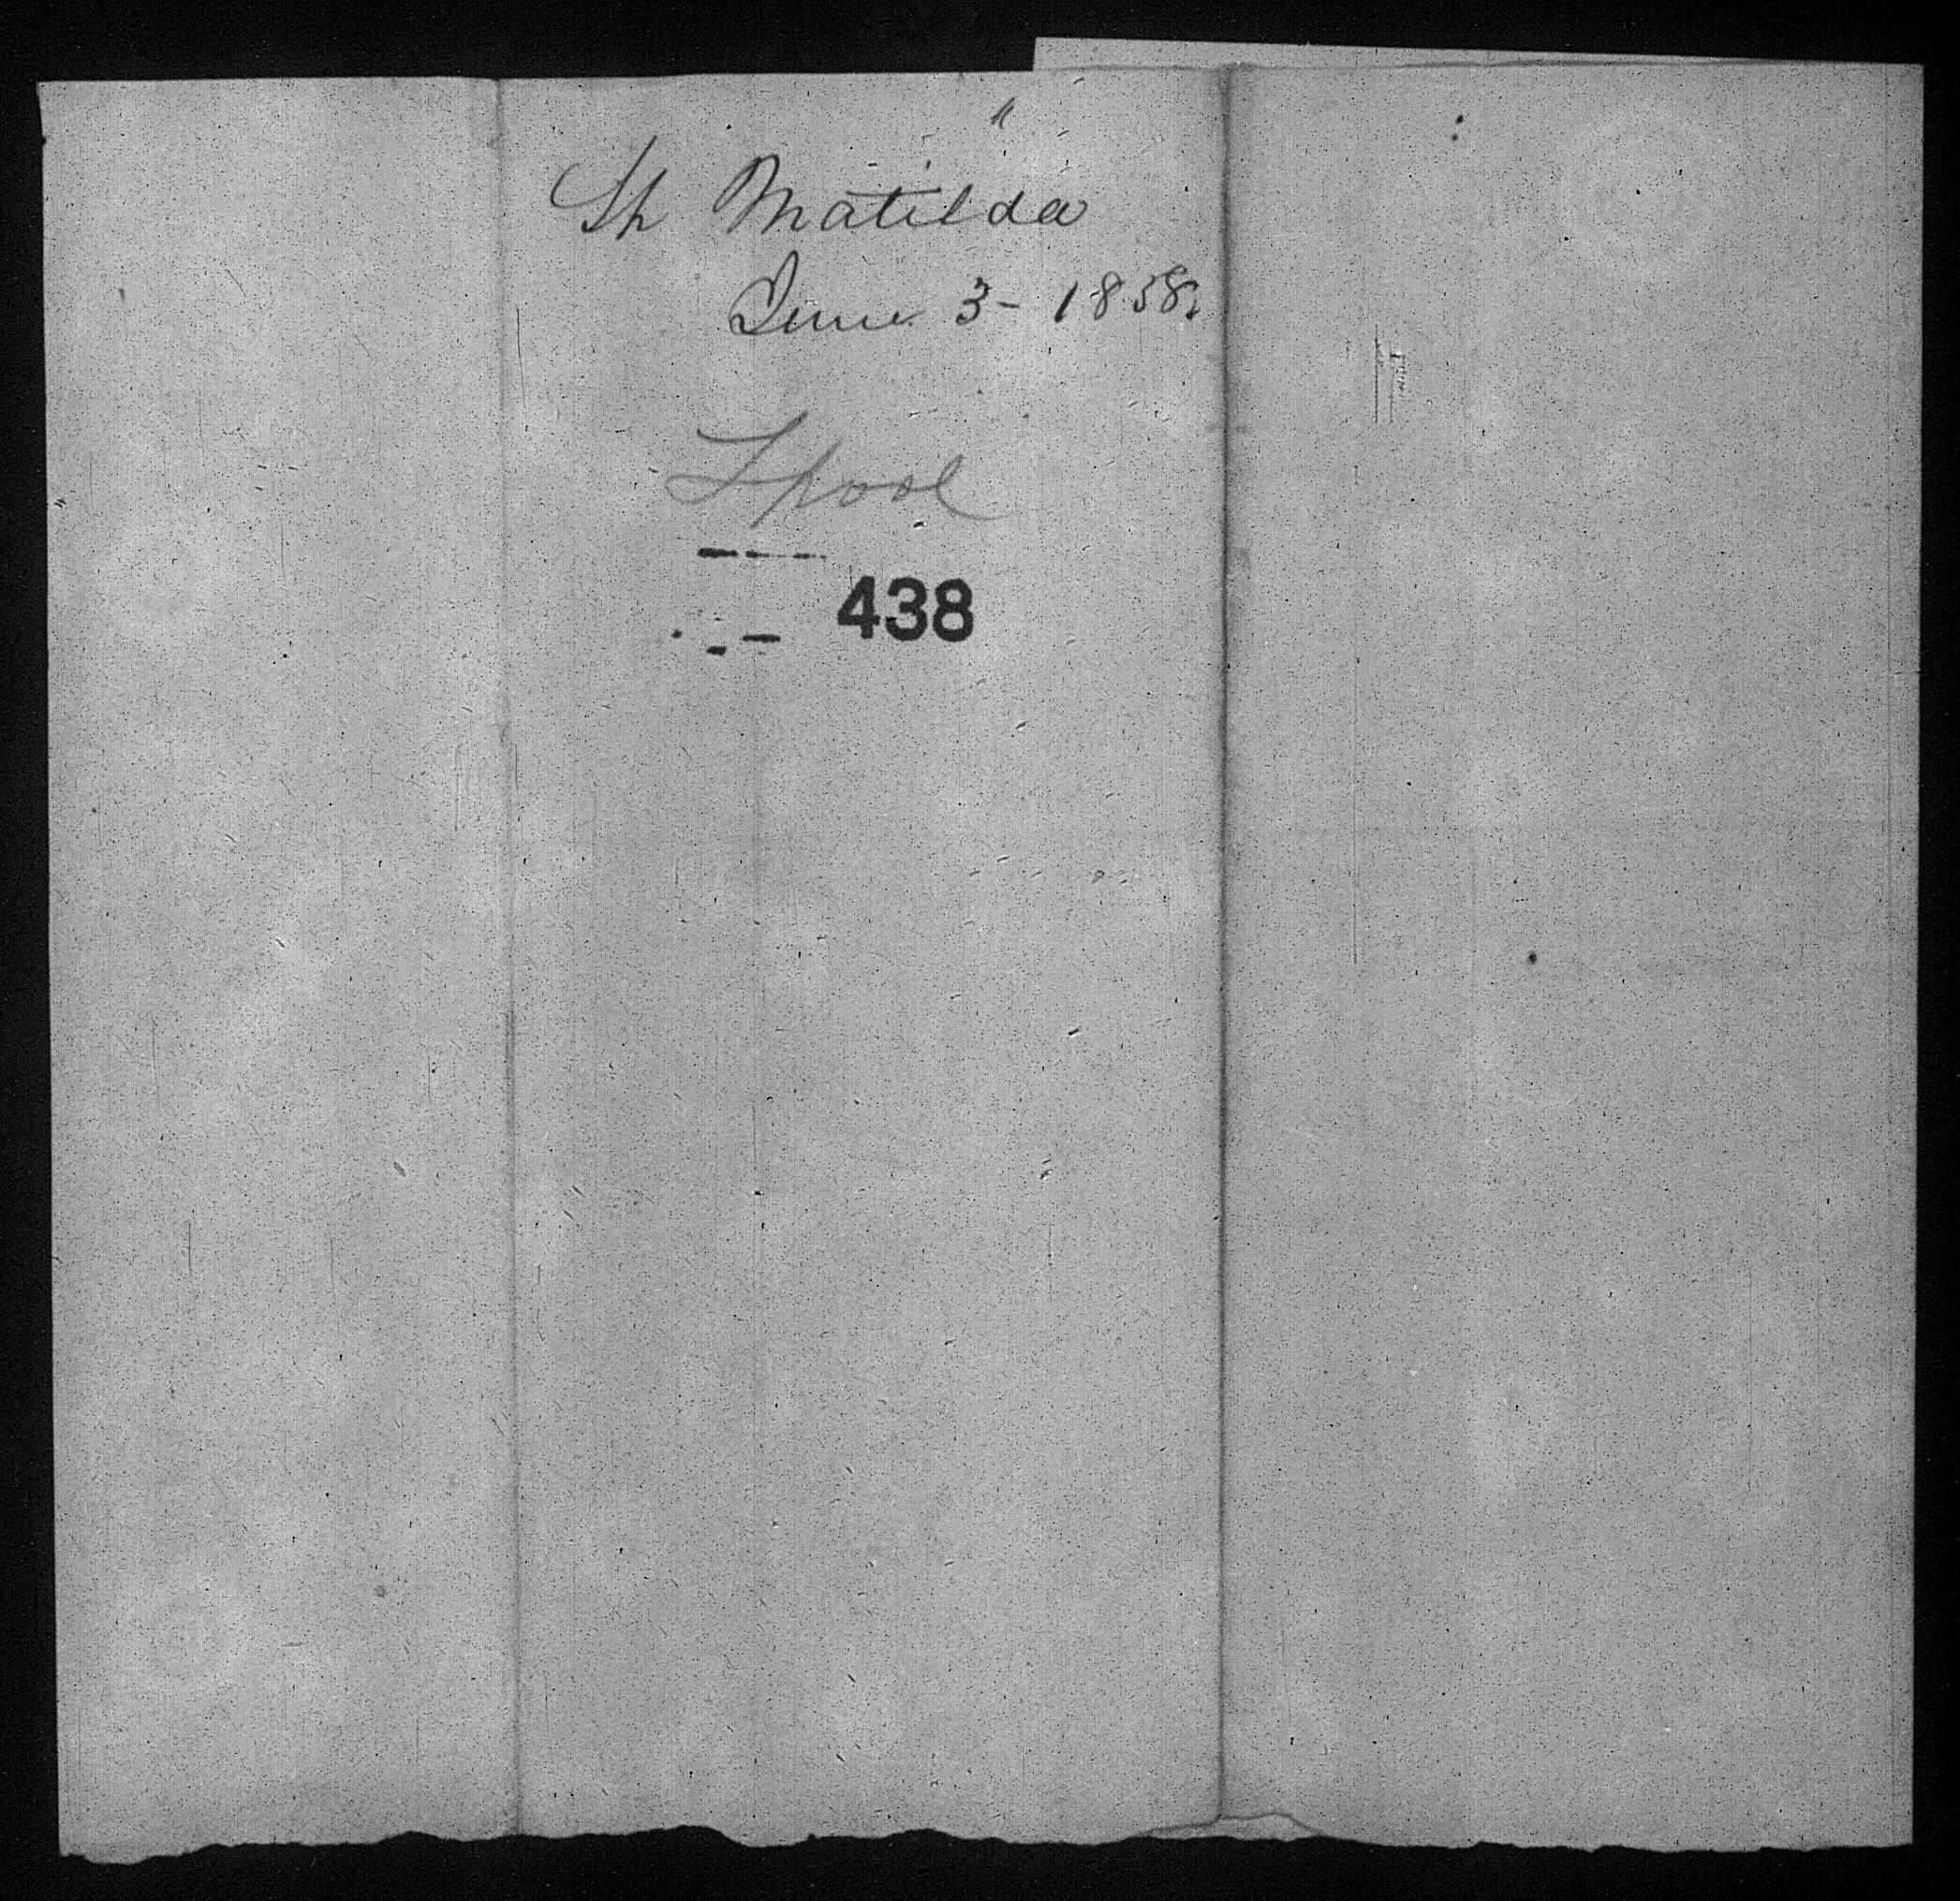 Sh Matilda
June 3- 1858.
Lpool
438